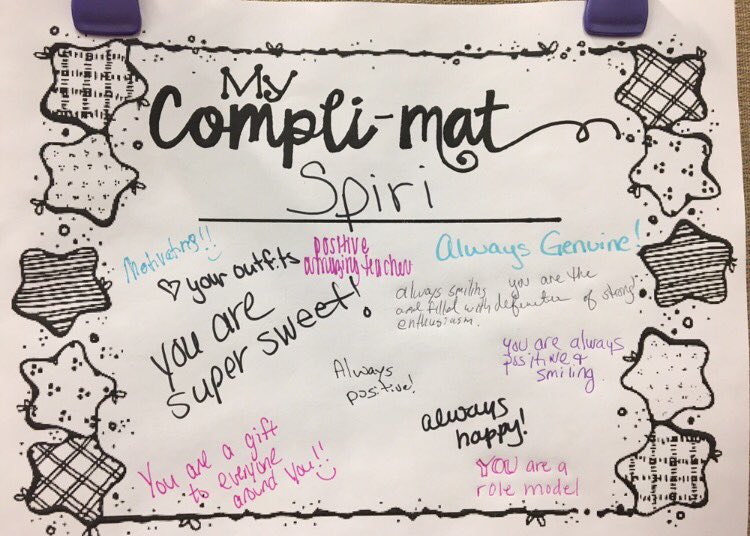 My
Compli-mat
Spiri
Motivating!!
♡ your outfits
positive
amazing teacher
Always Genuine!
You are
super sweet!
always smiling
and filled with
enthusiasm.
you are the
definition of strong
Always
positive!
you are always
positive &
smiling
always
happy!
You are a gift
to everyone
around you!!
YOU are a
role model